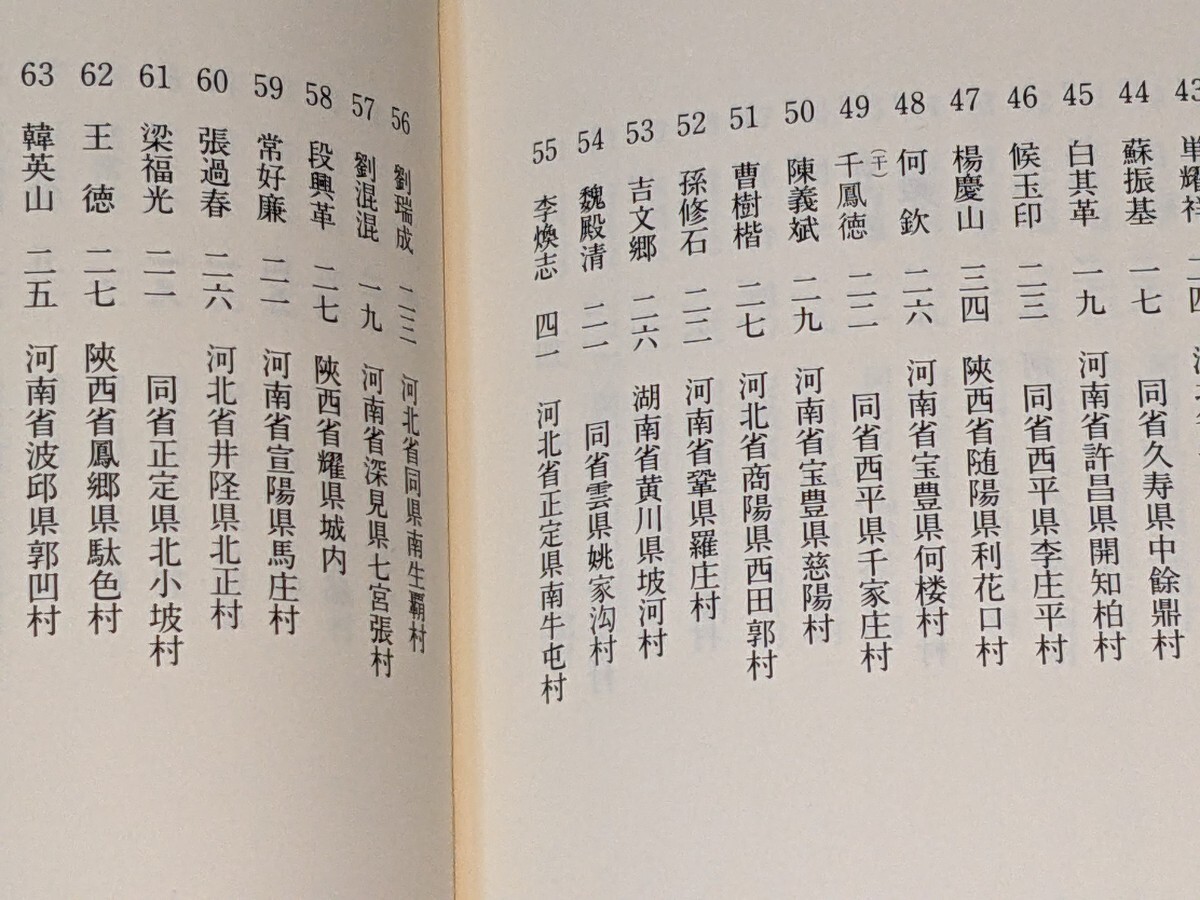 43 単耀祥 二四 河北省
44 蘇振基 一七 同省久寿県中餘鼎村
45 白其革 一九 河南省許昌県開知柏村
46 候玉印 二三 同省西平県李庄平村
47 楊慶山 三四 陝西省随陽県利花口村
48 何 欽 二六 河南省宝豊県何楼村
49 千(干)鳳徳 二二 同省西平県千家庄村
50 陳義斌 二九 河南省宝豊県慈陽村
51 曹樹楷 二七 河北省商陽県西田郭村
52 孫修石 二二 河南省鞏県羅庄村
53 吉文郷 二六 湖南省黄川県坡河村
54 魏殿清 二一 同省雲県姚家沟村
55 李煥志 四一 河北省正定県南牛屯村
56 劉瑞成 二三 河北省同県南生覇村
57 劉混混 一九 河南省深見県七宮張村
58 段興革 二七 陝西省耀県城内
59 常好廉 二一 河南省宣陽県馬庄村
60 張過春 二六 河北省井陘県北正村
61 梁福光 二一 同省正定県北小坡村
62 王 徳 二七 陝西省鳳郷県駄色村
63 韓英山 二五 河南省波邱県郭凹村